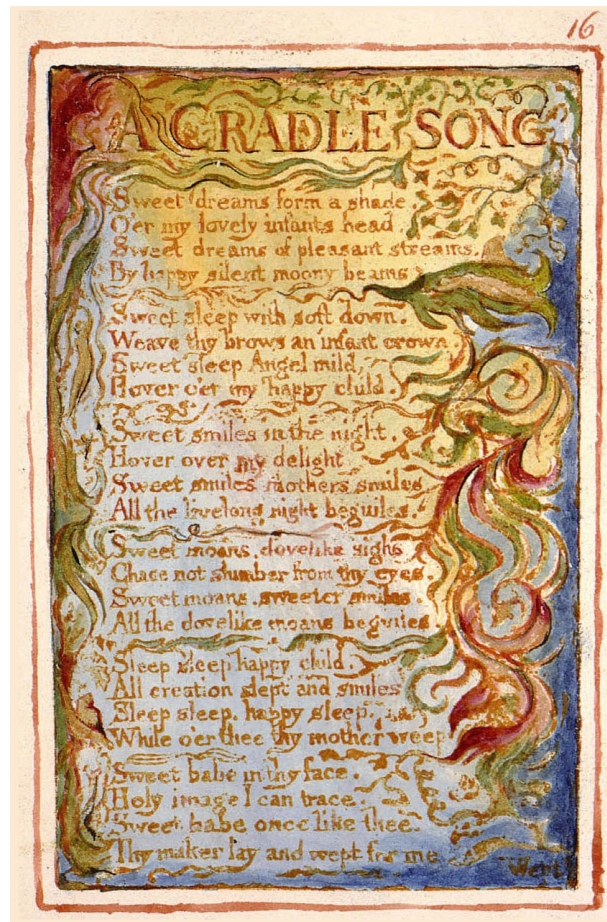 16
A CRADLE SONG
Sweet dreams form a shade
O'er my lovely infants head
Sweet dreams of pleasant streams.
By happy silent moony beams
Sweet sleep with soft down.
Weave thy brows an infant crown
Sweet sleep Angel mild,
Hover o'er my happy child.
Sweet smiles in the night.
Hover over my delight
Sweet smiles mothers smiles
All the livelong night beguiles.
Sweet moans, dovelike sighs
Chase not slumber from thy eyes.
Sweet moans, sweeter smiles
All the dovelike moans beguiles.
Sleep sleep happy child.
All creation slept and smil'd
Sleep sleep, happy sleep,
While o'er thee thy mother weep
Sweet babe in thy face.
Holy image I can trace.
Sweet babe once like thee.
Thy maker lay and wept for me
Wept